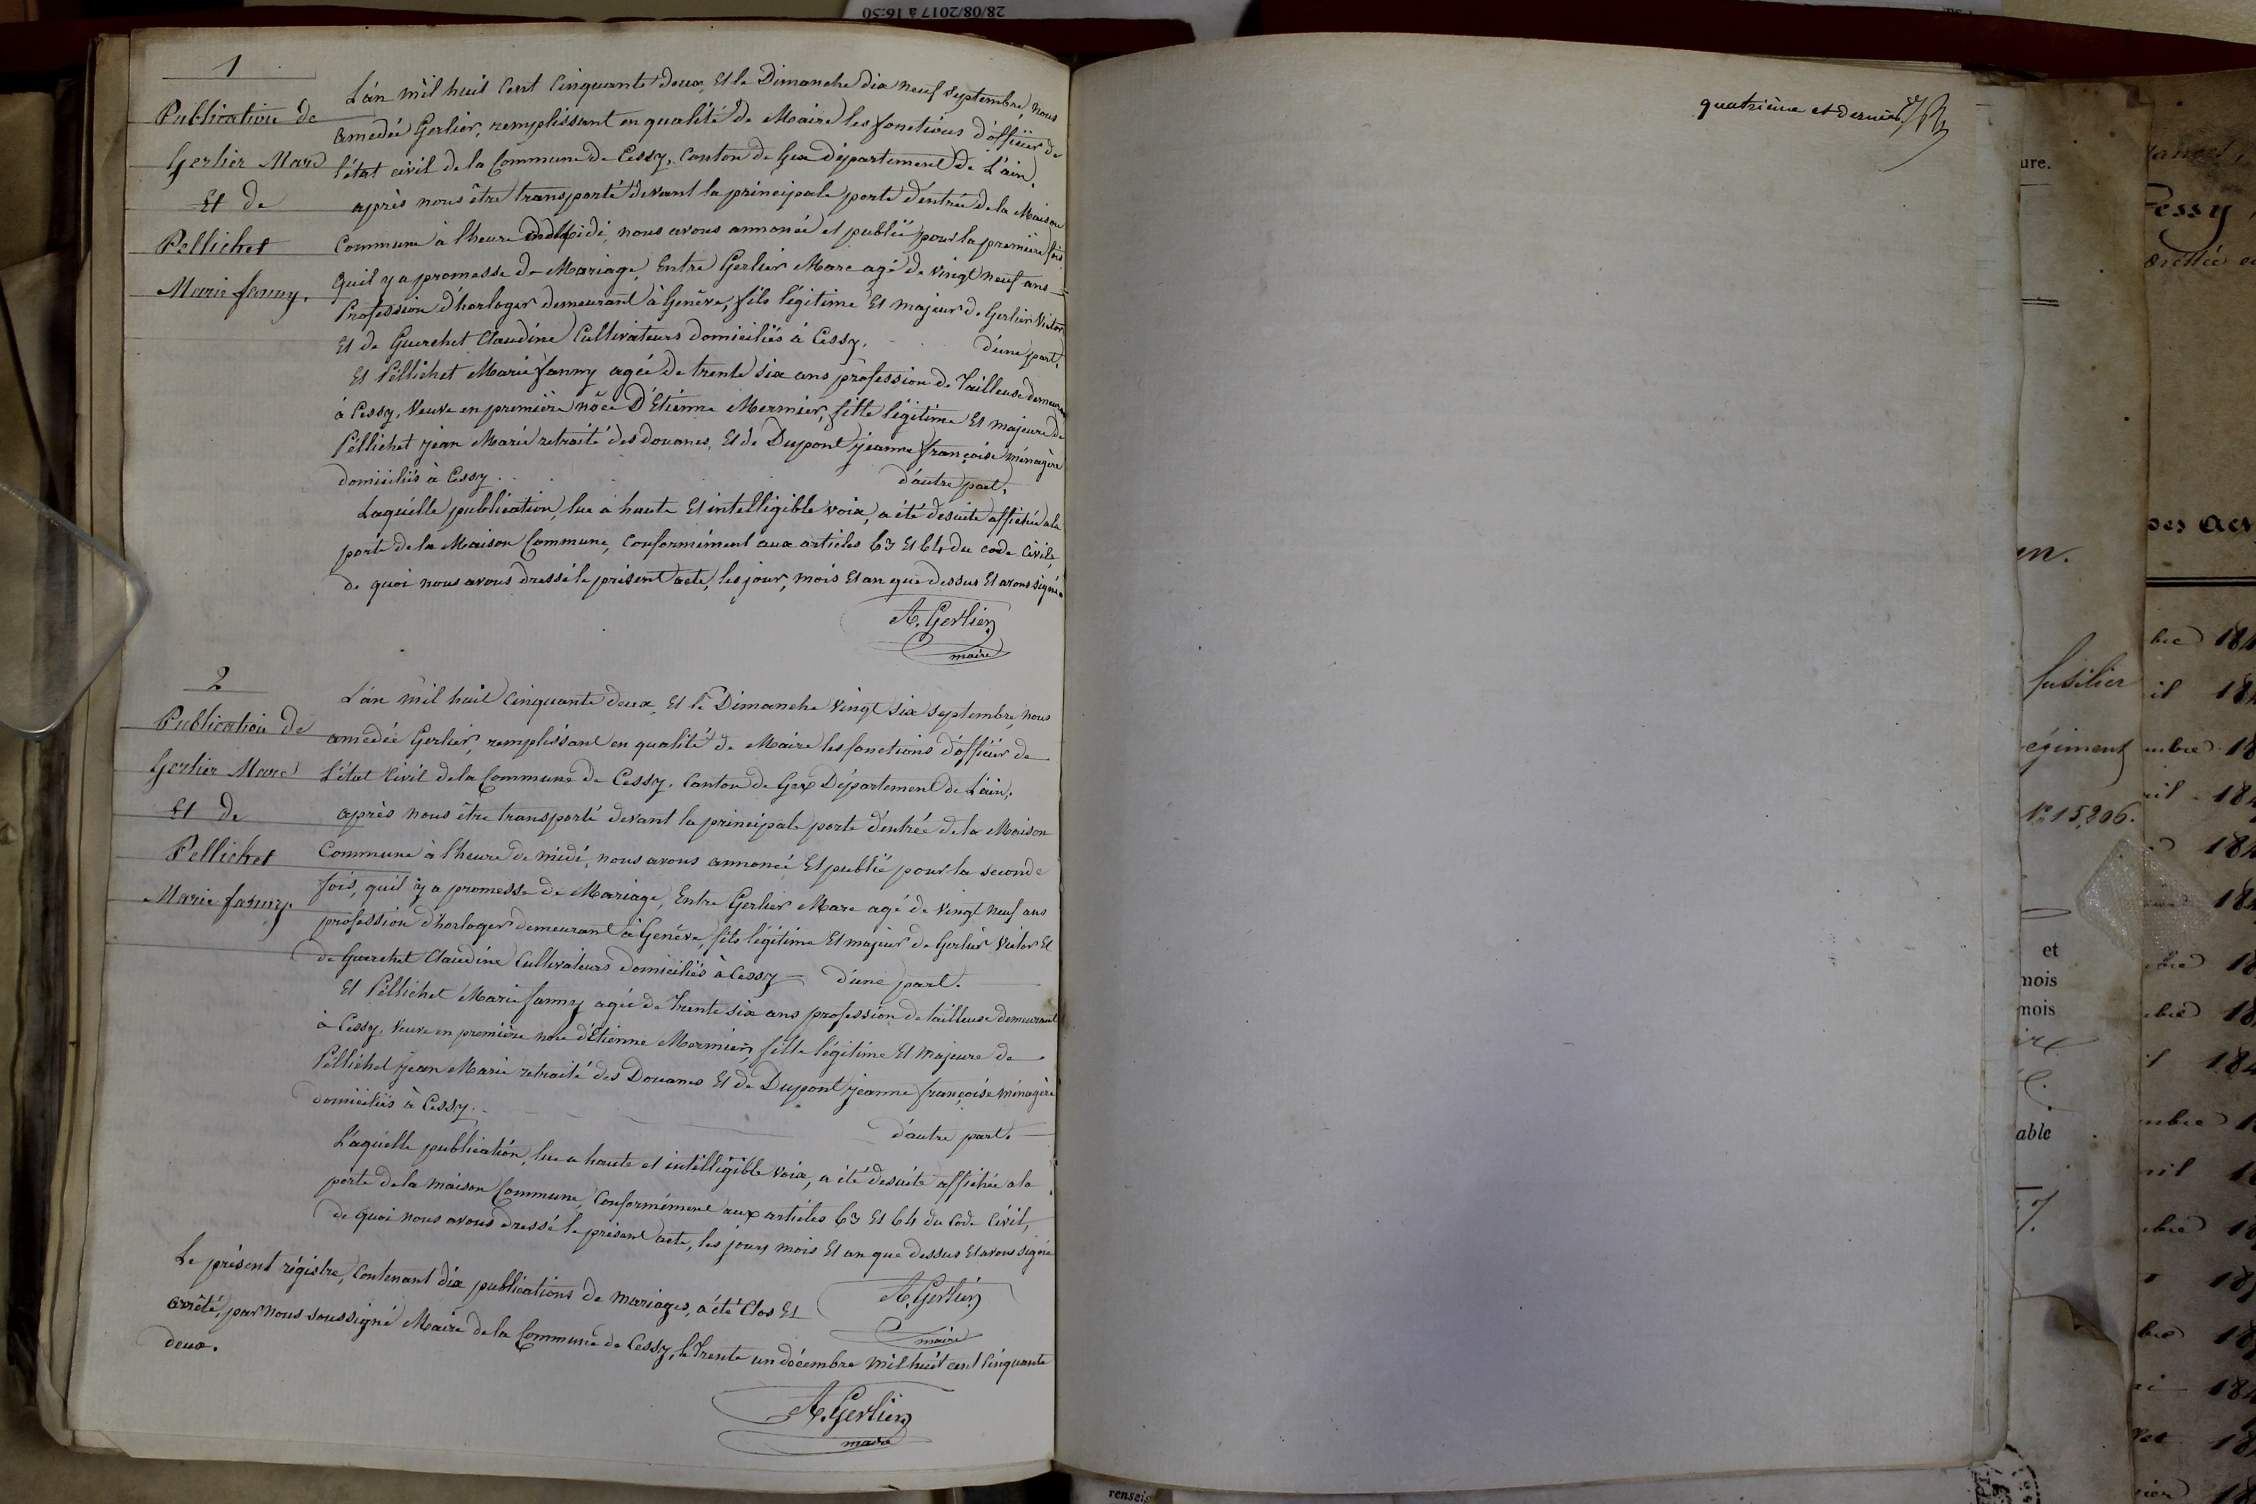 28/08/2017 à 16:50
1
Publication de
Gerlier Marc
Et de
Pellichet
Marie fanny.
L'án mil huit Cent Cinquante deux, Et le Dimanche dix neuf septembre, nous
Amedée Gerlier, remplissant en qualité de Maire les fonctions d'officier de
l'état civil de la Commune de Cessy, Canton de Gex département de L'ain,
après nous être transporté devant la principale porte d'entrée de la Maison
Commune à l'heure de Midi, nous avons annoncé et publié pour la première fois
quil y a promesse de Mariage, Entre Gerlier Marc agé de vingt neuf ans
Profession d'horloger demeurant à Genêve, fils légitime Et majeur de Gerlier Victor
Et de Guerchet Claudine Cultivateurs domiciliés à Cessy. d'une part.
Et Péllichet Marie fanny agée de trente six ans profession de Tailleuse demeurant
à Cessy, Veuve en première nôce D'Etienne Mermier, fille légitime Et majeure de
Péllichet jéan Marie retraité des douanes, Et de Dupont jeanne françoise ménagère
domiciliés à Cessy. d'autre part.
Laquélle publication, lue a haute Et intelligible voix, a été desuite affichée a la
porte de la Maison Commune, Conformément aux articles 63 Et 64 du code Civile,
de quoi nous avons dressé le présent acte, les jour, mois Et an que dessus Et avons signé.
A. Gerlier
maire
2
Publication de
Gerlier Marc
Et de
Pellichet
Marie fanny.
L'án mil huit Cinquante deux, Et le Dimanche Vingt six septembre, nous
amedée Gerlier, remplissant en qualité de Maire les fonctions d'officier de
L'état Civil de la Commune de Cessy, Canton de Gex Département de L'ain,
après nous être transporté devant la principale porte d'entrée de la Maison
Commune à l'heure de midi, nous avons annoncé Et publié pour la seconde
fois, quil y a promesse de Mariage, Entre Gerlier Marc agé de Vingt neuf ans
profession d'horloger demeurant à Genêve, fils légitime Et majeur de Gerlier Victor Et
de Guerchet Claudine Cultivateurs domiciliés à Cessy d'une part.
Et Péllichet Marie fanny agée de Trente six ans profession de tailleuse demeurant
à Cessy, Veuve en première noce d'Etienne Mermier, fille légitime Et majeure de
Péllichet jean Marie retraité des Douanes Et de Dupont jeanne françoise ménagère
domiciliés à Cessy. d'autre part.
Láquélle publication, lue a haute et intélligible voix, a été desuite affichée a la
porte de la maison Commune, Conformément aux articles 63 Et 64 du Code Civil,
de quoi nous avons dressé le présent acte, les jour, mois Et an que dessus Et avons signé
A. Gerlier
maire
Le présent régistre, Contenant dix publications de mariages, a été Clos Et
arrêté, par nous soussigné Maire de la Commune de Cessy, le Trente un décembre mil huit cent Cinquante
deux.
A. Gerlier
maire
quatrième et dernière
ure.
fusilier
égiment
No 15,206.
et
mois
mois
able
Cessy
des
renseig